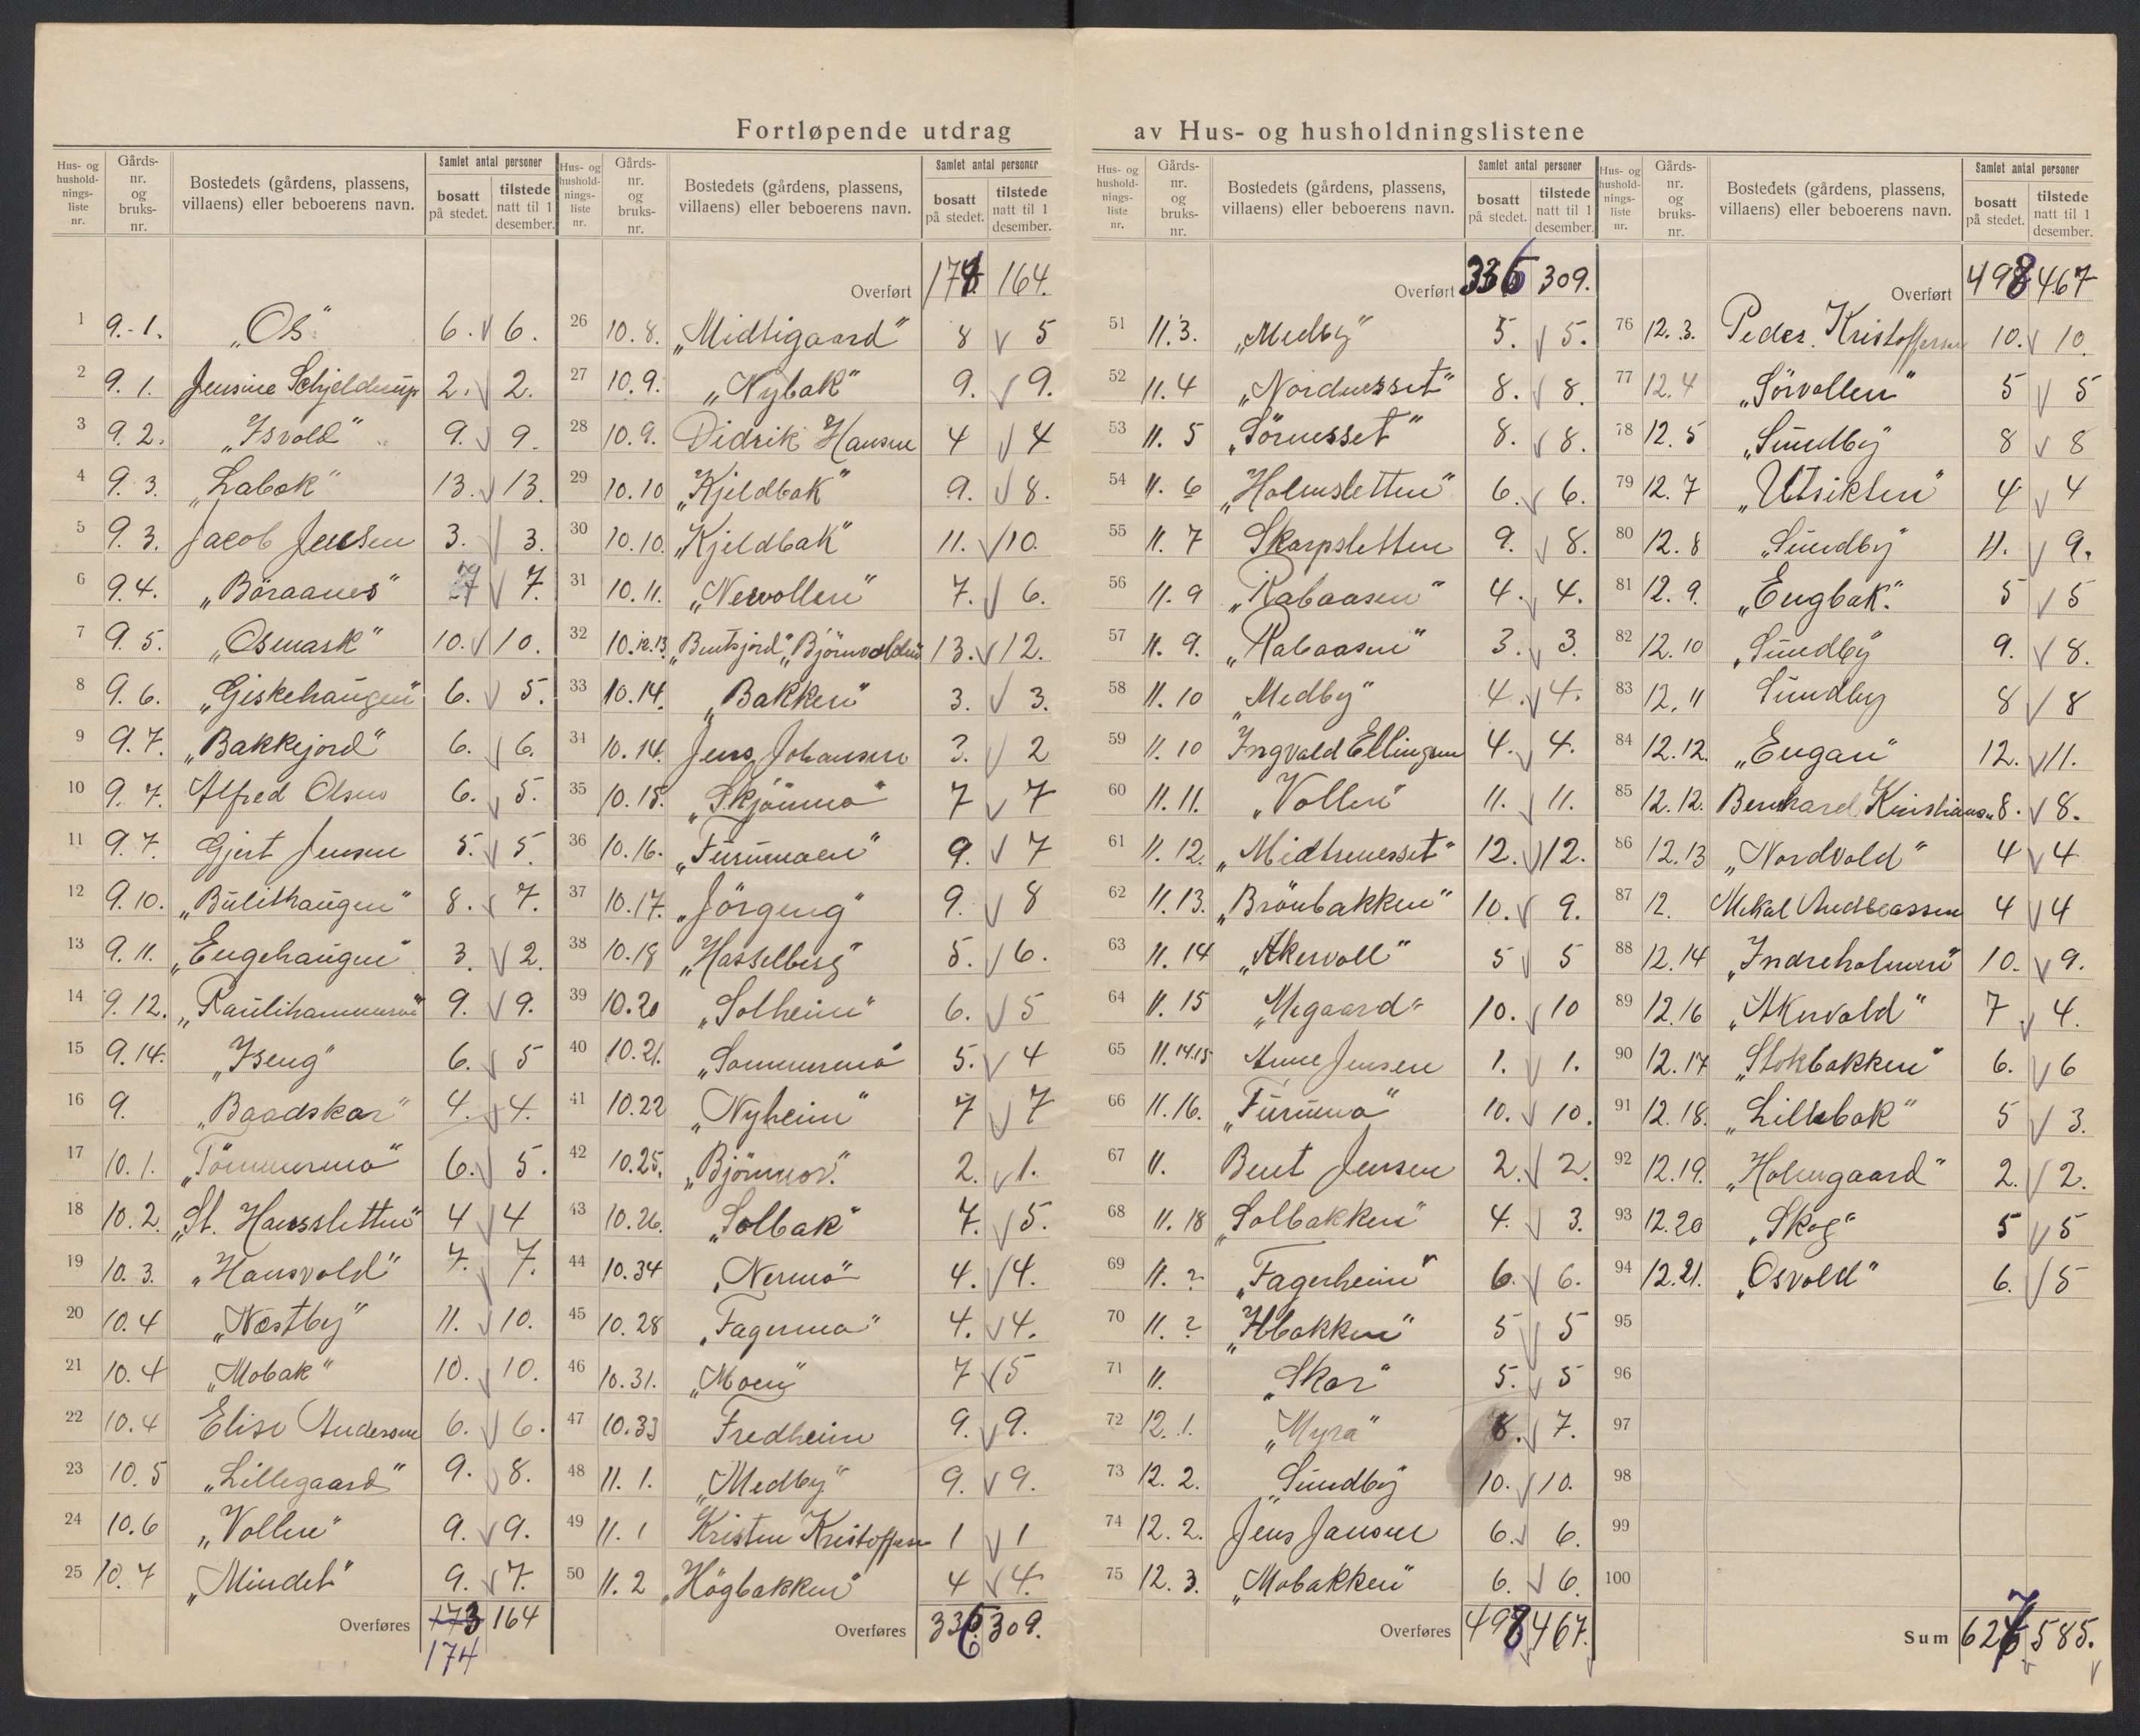 Fortløpende utdrag av Hus- og husholdningslistene
Hus- og husholdnings-liste nr. Gårds-nr. og bruks-nr. Bostedets (gårdens, plassens, villaens) eller beboerens navn. Samlet antal personer bosatt på stedet. tilstede natt til 1 desember.
1 9.-1. „Os" 6. 6.
2 9. 1. Jensine Schjelderup 2. 2.
3 9. 2. „Isvold" 9. 9.
4 9. 3. „Labak" 13. 13.
5 9. 3. Jacob Jensen 3. 3.
6 9.4. „Böraanes" 7 7.
7 9. 5. „Osmark" 10. 10.
8 9. 6. „Giskehaugen" 6. 5.
9 9. 7. „Bakkejord" 6. 6.
10 9. 7. Alfred Olsen 6. 5.
11 9. 7. Gjert Jensen 5. 5.
12 9. 10. „Bulithaugen" 8. 7.
13 9. 11. „Engehaugen" 3. 2.
14 9. 12. „Raulihammeren" 9. 9.
15 9. 14. „Iseng" 6. 5
16 9. „Baadskar" 4. 4.
17 10. 1. „Tömmermo" 6. 5.
18 10. 2. „St. Hanssletten" 4 4
19 10. 3. „Hansvold" 7. 7.
20 10. 4 „Nostby" 11. 10.
21 10. 4 „Mobak" 10. 10.
22 10. 4 Elise Andersen 6. 6.
23 10. 5 „Lillegaard" 9. 8.
24 10. 6 „Vollen" 9. 9.
25 10. 7 „Mindet" 9. 7.
Overføres 173 164
174
Hus- og husholdnings-liste nr. Gårds-nr. og bruks-nr. Bostedets (gårdens, plassens, villaens) eller beboerens navn. Samlet antal personer bosatt på stedet. tilstede natt til 1 desember.
Overført 174 164.
26 10. 8. „Midtigaard" 8 5
27 10. 9. „Nybak" 9. 9.
28 10. 9. Didrik Hansen 4 4
29 10. 10 „Kjeldbak" 9. 8.
30 10. 10. „Kjeldbak" 11. 10.
31 10. 11. „Nervollen" 7. 6.
32 10. 12. 13. „Bentsjord", „Björnvolden" 13. 12.
33 10. 14. „Bakken" 3. 3.
31 10. 14. Jens Johansen 3. 2
35 10. 15. „Skjönmo" 7 7
36 10. 16. „Furumoen" 9. 7
37 10. 17. „Jörgeng" 9. 8
38 10. 18 „Hasselberg" 5. 6.
39 10. 20 „Solheim" 6. 5
40 10. 21. „Sommermo" 5. 4
41 10. 22 „Nyheim" 7 7
42 10. 25. „Björnmor." 2. 1.
43 10. 26. „Solbak" 7. 5.
44 10. 34 „Nermo" 4. 4.
45 10. 28 „Fagermo" 4. 4.
46 10. 31. „Moen" 7 5
47 10. 33 Fredheim 9. 9.
48 11. 1. „Medby" 9. 9.
49 11. 1 Kristen Kristoffersen 1 1
50 11. 2 „Högbakken" 4 4.
Overføres 336 309.
Hus- og husholdnings-liste nr. Gårds-nr. og bruks-nr. Bostedets (gårdens, plassens, villaens) eller beboerens navn. Samlet antal personer bosatt på stedet. tilstede natt til 1 desember.
Overført 336 309.
51 11. 3. „Medby" 5. 5.
52 11. 4 „Nordnesset" 8. 8.
53 11. 5 „Sörnesset" 8. 8.
54 11. 6 „Holmsletten" 6. 6.
55 11. 7 Skarpsletten 9. 8.
56 11. 9 „Rabaasen" 4. 4.
57 11. 9. „Rabaasen" 3. 3.
58 11. 10 „Medby" 4. 4.
59 11. 10 Ingvald Ellingsen 4. 4.
60 11. 11. „Vollen" 11. 11.
61 11. 12. „Midtrenesset" 12. 12.
62 11. 13. „Brönbakken" 10. 9.
63 11. 14 „Akervoll" 5 5
64 11. 15 „Megaard" 10. 10
65 11. 14.15 Anne Jensen 1. 1.
66 11. 16. „Furumo" 10. 10.
67 11. Bent Jensen 2. 2.
68 11. 18 „Solbakken" 4. 3.
69 11. ? „Fagerheim" 6. 6.
70 11. ? „Hbakken" 5 5
71 11. „Skar" 5. 5
72 12. 1. „Myra" 8. 7.
73 12. 2. „Sundby 10. 10.
74 12. 2. Jens Jansen 6. 6.
75 12. 3. „Mobakken" 6. 6.
Overføres 498 467.
Hus- og husholdnings-liste nr. Gårds-nr. og bruks-nr. Bostedets (gårdens, plassens, villaens) eller beboerens navn. Samlet antal personer bosatt på stedet. tilstede natt til 1 desember.
Overført 498 467
76 12. 3. Peder Kristoffersen 10. 10.
77 12. 4 „Sörvollen" 5 5
78 12. 5 „Sundby" 8 8
79 12. 7 „Utsikten" 4 4
80 12. 8 „Sundby" 11. 9.
81 12. 9. „Engbak." 5 5
82 12. 10 „Sundby" 9. 8.
83 12. 11 Sundby 8 8
84 12. 12. „Engan" 12. 11.
85 12. 12. Bernhard Kristians. 8. 8.
86 12. 13 „Nordvold" 4 4
87 12. Mikal Andreassen 4 4
88 12. 14 „Indreholmen" 10. 9.
89 12. 16 „Akervold" 7 4.
90 12. 17 „Stokbakken" 6. 6
91 12. 18. „Lillebak" 5 3.
92 12. 19. „Holmgaard" 2. 2.
93 12. 20 „Skog" 5 5
94 12. 21. „Osvold" 6. 5
95
96
97
98
99
100
Sum 627 585.